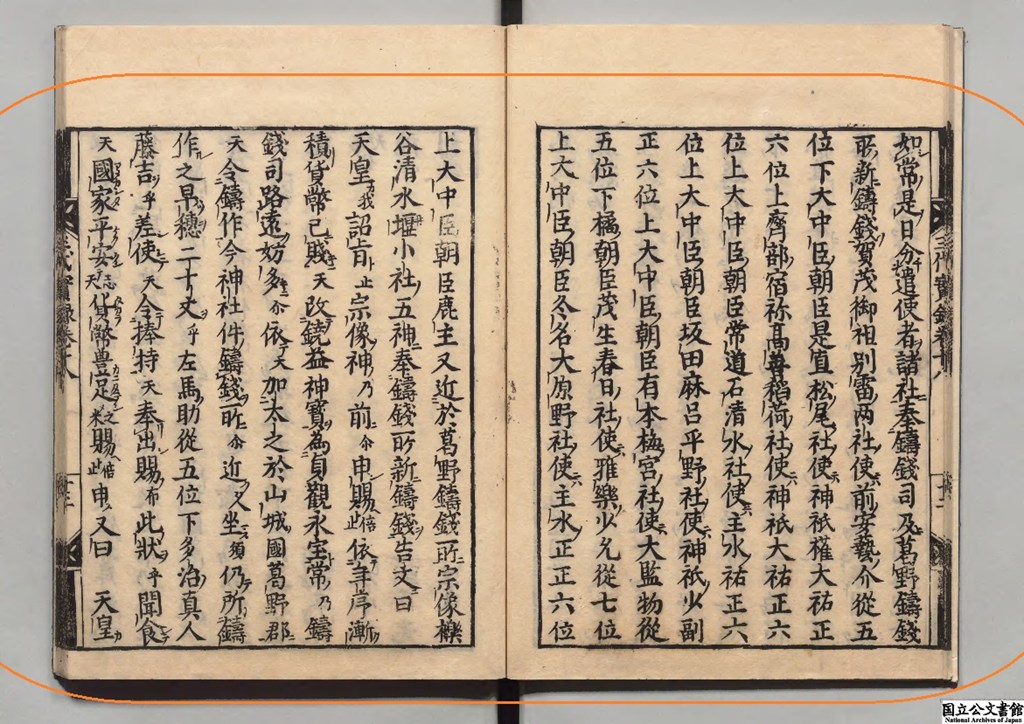 如常是日分遣使者諸社奉鑄錢司及葛野鑄錢
所新鑄錢賀茂御祖別雷兩社使前安藝介從五
位下大中臣朝臣是直松尾社使神祇權大祐正
六位上齊部宿祢高善稻荷社使神祇大祐正六
位上大中臣朝臣常道石清水社使主水祐正六
位上大中臣朝臣坂田麻呂平野社使神祇少副
正六位上大中臣朝臣有本梅宮社使大監物從
五位下橘朝臣茂生春日社使雅樂少允從七位
上大中臣朝臣冬名大原野社使主水正正六位
上大中臣朝臣鹿主又近於葛野鑄錢所宗像櫟
谷清水堰小社五神奉鑄錢所新鑄錢告文曰
天皇我詔旨止宗像神乃前尒申賜倍止依年序漸
積貨幣已賤天改鐃益神寶為貞觀永宝常乃鑄
錢司路遠妨多尒依天加太之於山城國葛野郡
天令鑄作今神社件鑄錢所尒近久坐須仍所鑄
作之早穗二十文乎左馬助從五位下多治真人
藤吉乎差使天令捧持天奉出賜布此狀乎聞食
天國家平安天志貨幣豊足米之賜倍止申又曰 天皇
三代實錄卷十八
三代實錄卷十八
国立公文書館
National Archives of Japan